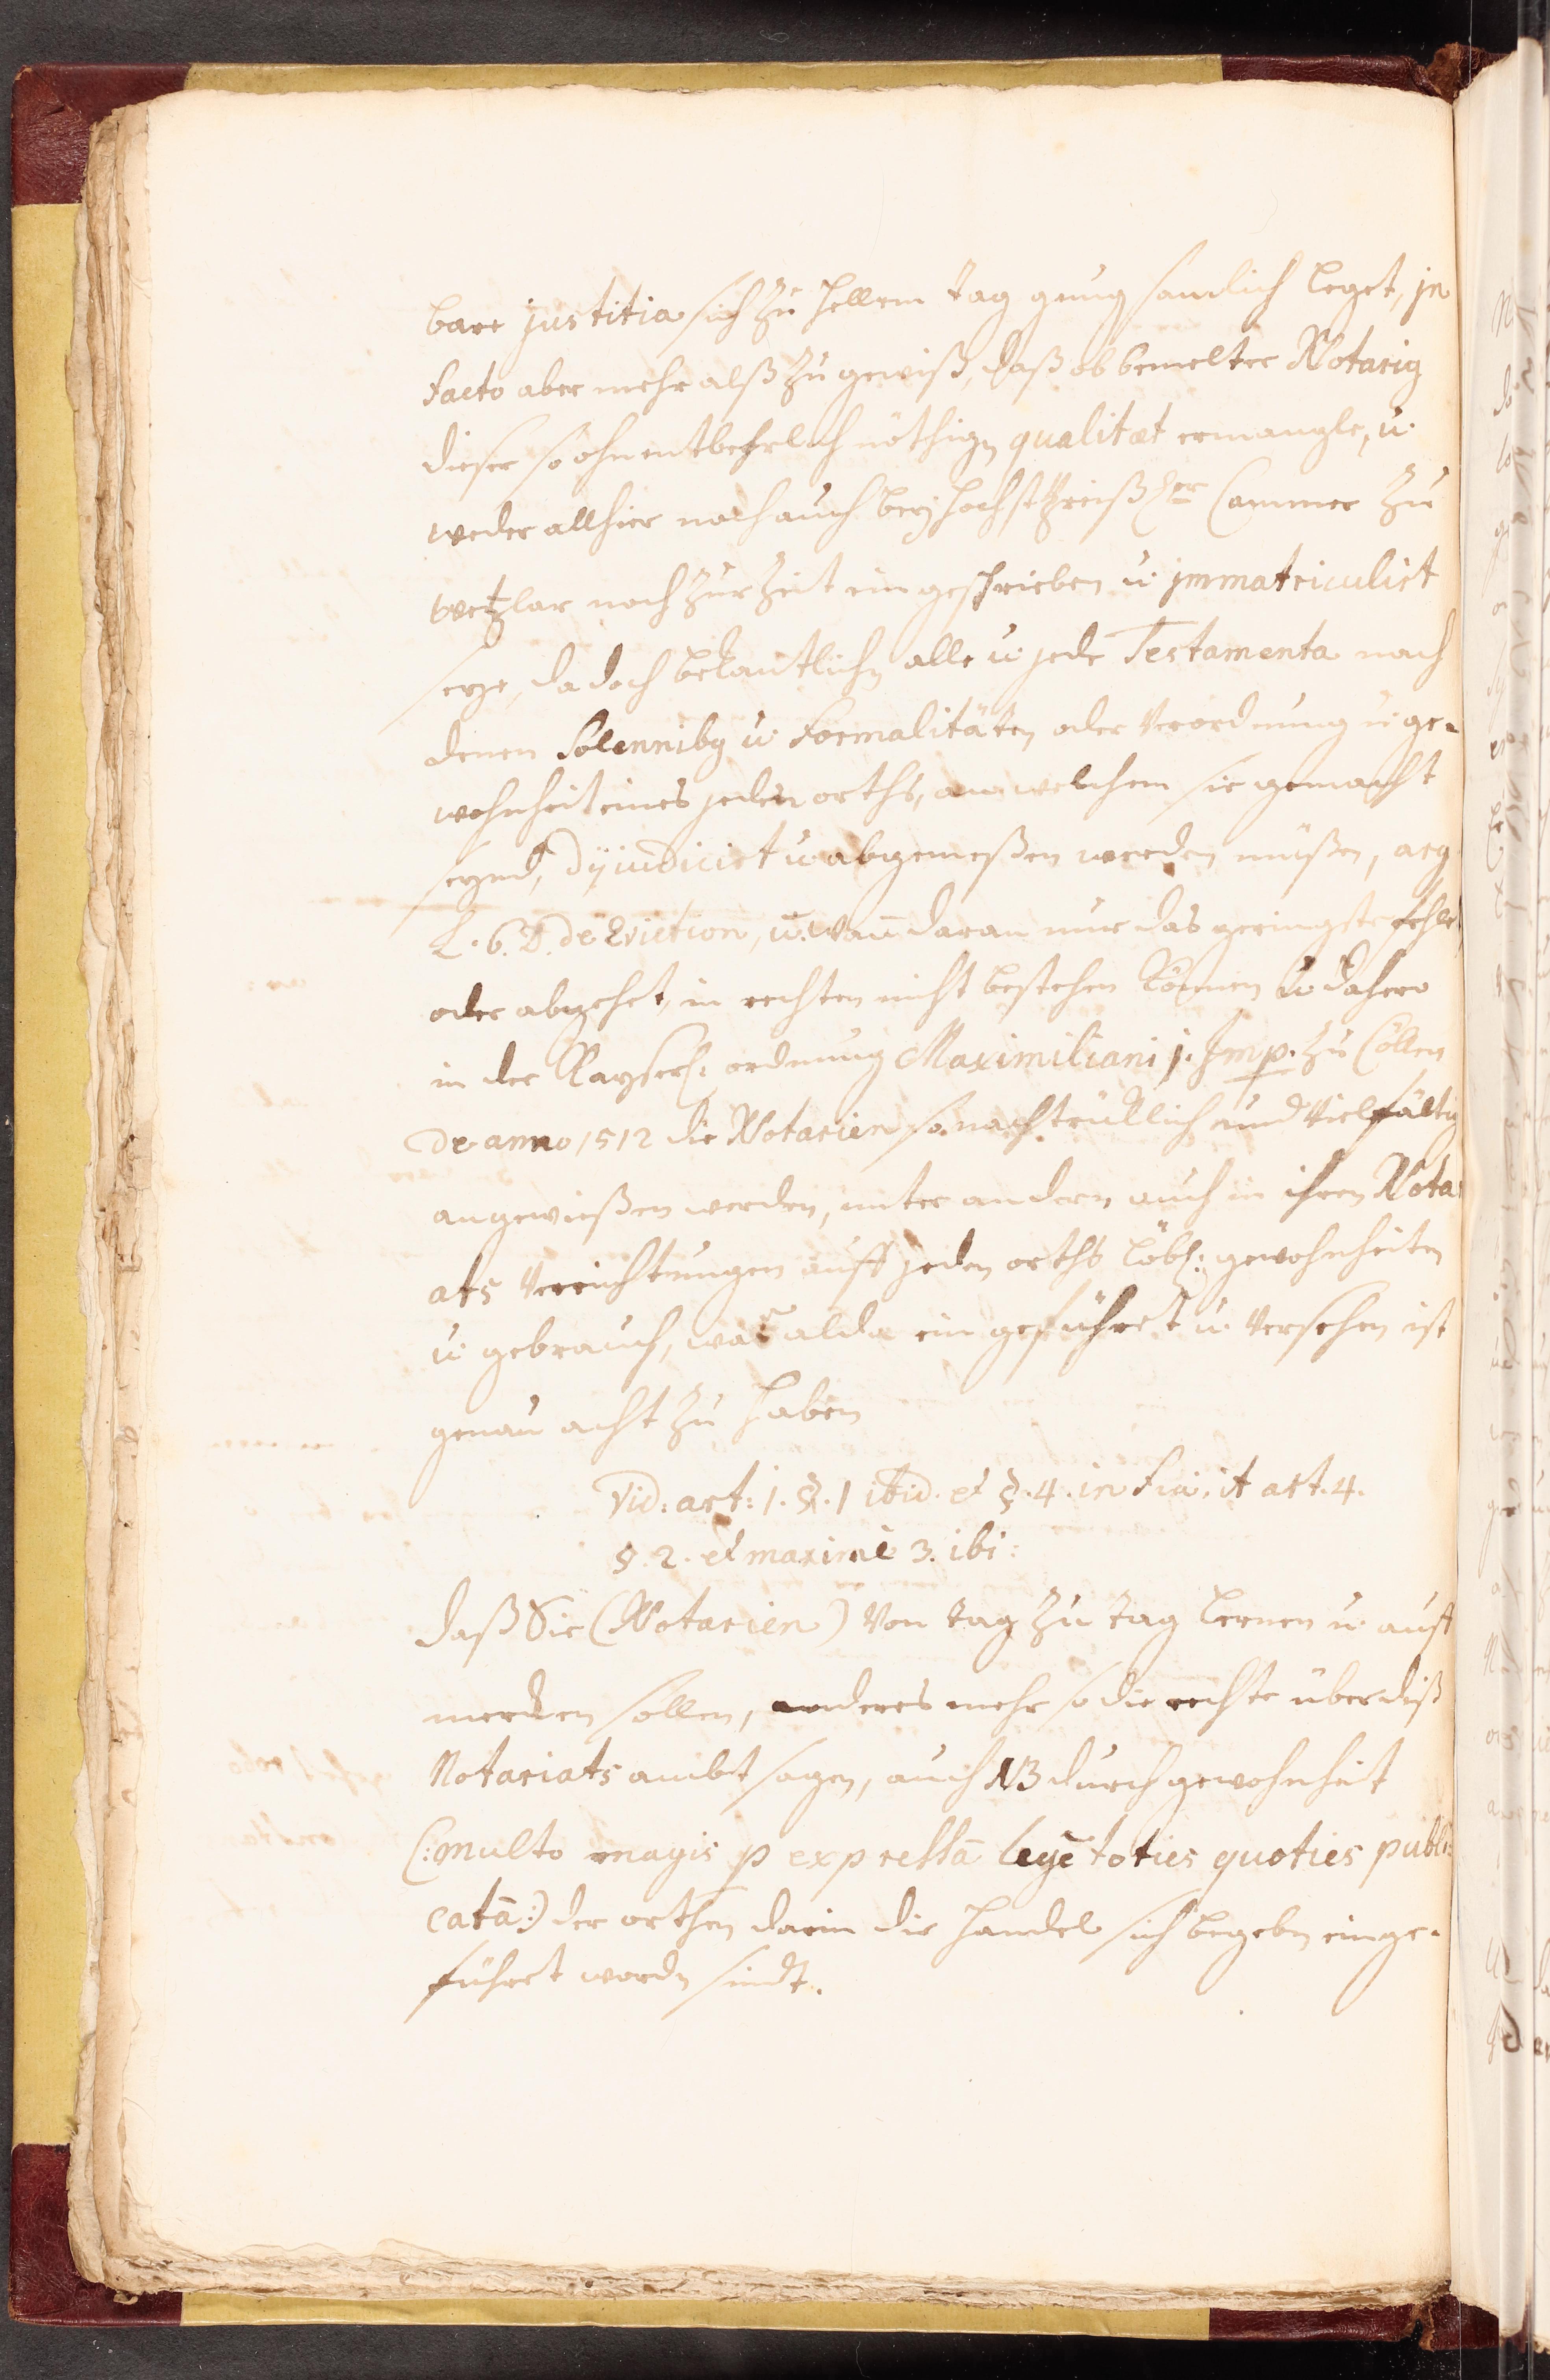 bare justitia sich zu hellem tag gnug samlich leget, jn
facto aber mehr alß zu gewiß, daß ob bemelter Notarig
dieser so ohnentbehrlich nöthign qualitæt ermangle, u.
weder allhier noch auch beÿ höchst preißl.er Cammer zu
wetzlar noch zur Zeit ein geschrieben u. jmmatriculirt
seye, da doch bekantlichn alle u. jede Testamenta nach
denen Solennibg u. Formalitäten oder Verordnung u. ge-
wohnheit eines jeden orths, an welchem sie gemacht
seynd, dijudicirt u. abgemeßen werden müßen, arg
L. 6. D. de Eviction, u. wan̄ daran nur das geringste fehlet
oder abgehet, in rechten nicht bestehen können u. dahero
in der Kayserl: ordnung Maximiliani j. Imp. zu Cöllen
de anno 1512 die Notarien so nachtrücklich und Vielfältig
angewießen werden, unter andern auch in ihren Notari
ats Verrichtungen auff jeden orths löbl: gewohnheiten
u. gebrauch, waß alda ein geführet u. Versehen ist
genau acht zu haben
Vid: art: 1. §. 1 ibid. et §. 4. in Fin. it art. 4.
§. 2. et maximè 3. ibi:
daß Sie (Notarien) Von tag zu tag lernen u. auff
mercken sollen, anderes mehr so die rechte über diß
Notariats ambt sagen, auch NB durch gewohnheit
(: multo magis p expressā legē toties quoties publi
catā:) der orthen darin die Handel sich begebn einge-
führet wordn sindt.